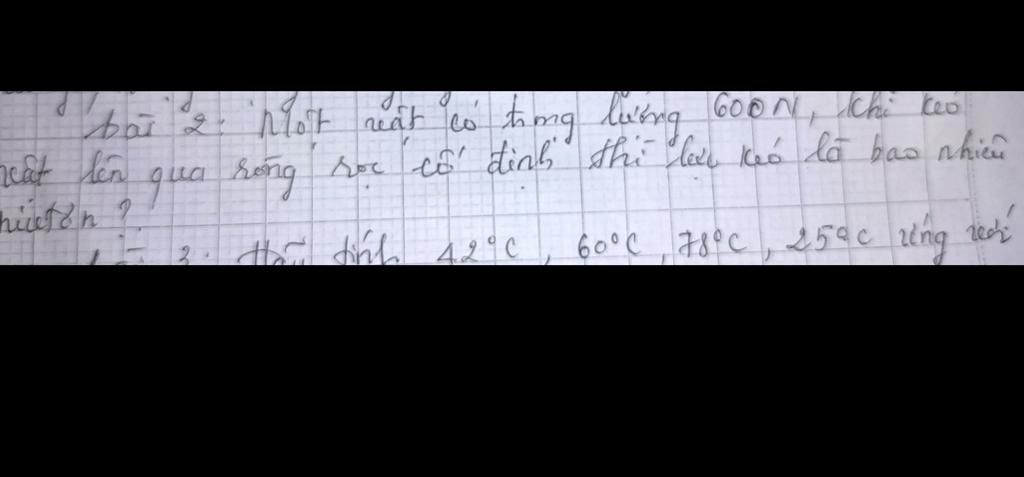 bài 2: Một vật có trọng lượng 600N, khi kéo
vật lên qua ròng rọc cố định thì lực kéo là bao nhiêu
niutơn?
bài 3: Hãy tính 42°C, 60°C, 78°C, 25°C ứng với